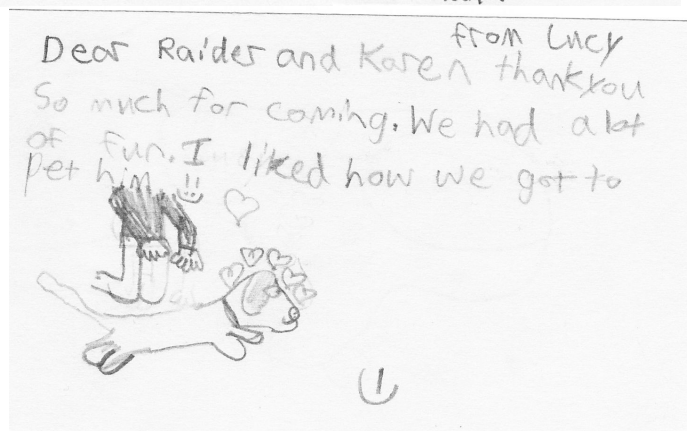 from Lucy
Dear Raider and Karen thankyou
So much for coming. We had a lot
of fun. I liked how we got to
pet him